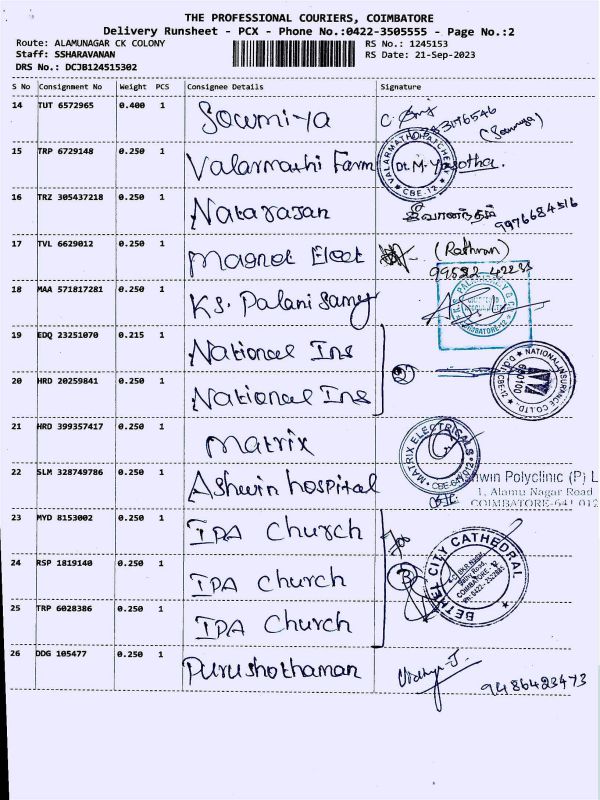 THE PROFESSIONAL COURIERS, COIMBATORE
Delivery Runsheet - PCX - Phone No.:0422-3505555 - Page No.:2
Route: ALAMUNAGAR CK COLONY RS No.: 1245153
Staff: SSHARAVANAN RS Date: 21-Sep-2023
DRS No.: DCJB124515302
S No Consignment No Weight PCS Consignee Details Signature
14 TUT 6572965 0.400 1 Sowmiya
(Sowmya)
15 TRP 6729148 0.250 1 Valarmathi Farm
VALARMATHI CBE-12
16 TRZ 305437218 0.250 1 Natarajan
ஜீவானந்தம் 9976684516
17 TVL 6629012 0.250 1 Magnet Elect
(Rathnan)
18 MAA 571817281 0.250 1 KS. Palani Samy
COIMBATORE-12
19 EDQ 23251070 0.215 1 National Ins
20 HRD 20259841 0.250 1 National Ins
2
NATIONAL INSURANCE CO LTD 680100
21 HRD 399357417 0.250 1 Matrix
MATRIX ELECTRICALS CBE-641 012
22 SLM 328749786 0.250 1 Ashwin hospital
hwin Polyclinic (P) L
1, Alamu Nagar Road
COIMBATORE-641 012
23 MYD 8153002 0.250 1 IPA Church
24 RSP 1819140 0.250 1 IPA Church
3
BETHEL CITY CATHEDRAL
COIMBATORE - 12
25 TRP 6028386 0.250 1 IPA Church
26 DDG 105477 0.250 1 Purushothaman
9486423473